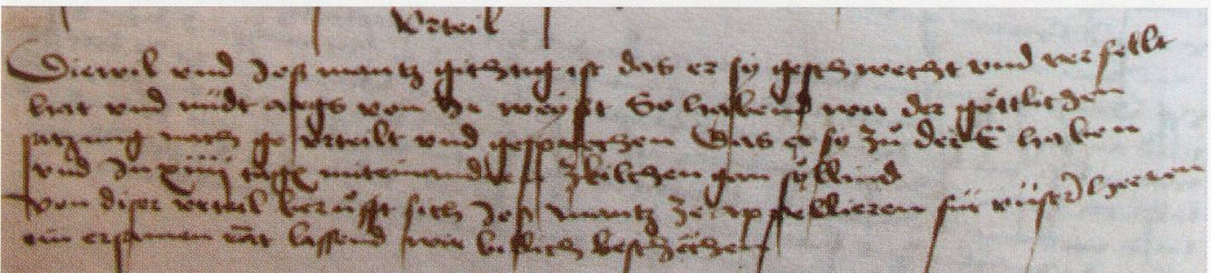 Urteil
Diewil und Jos mantz gichtig ist das er sy geschwecht und verfellt
hat und nüdt args von Ir weyst So habend wir der göttlichen
satzung nach ge urteilt und gesprochen Das er sy zů der E haben
und In xiiii tagen miteinander zkilchen gan söllind
von diser urteil berüfft sich Jos mantz ze appellieren für unser herren
ein ersamen rat lassend wir billich beschächen